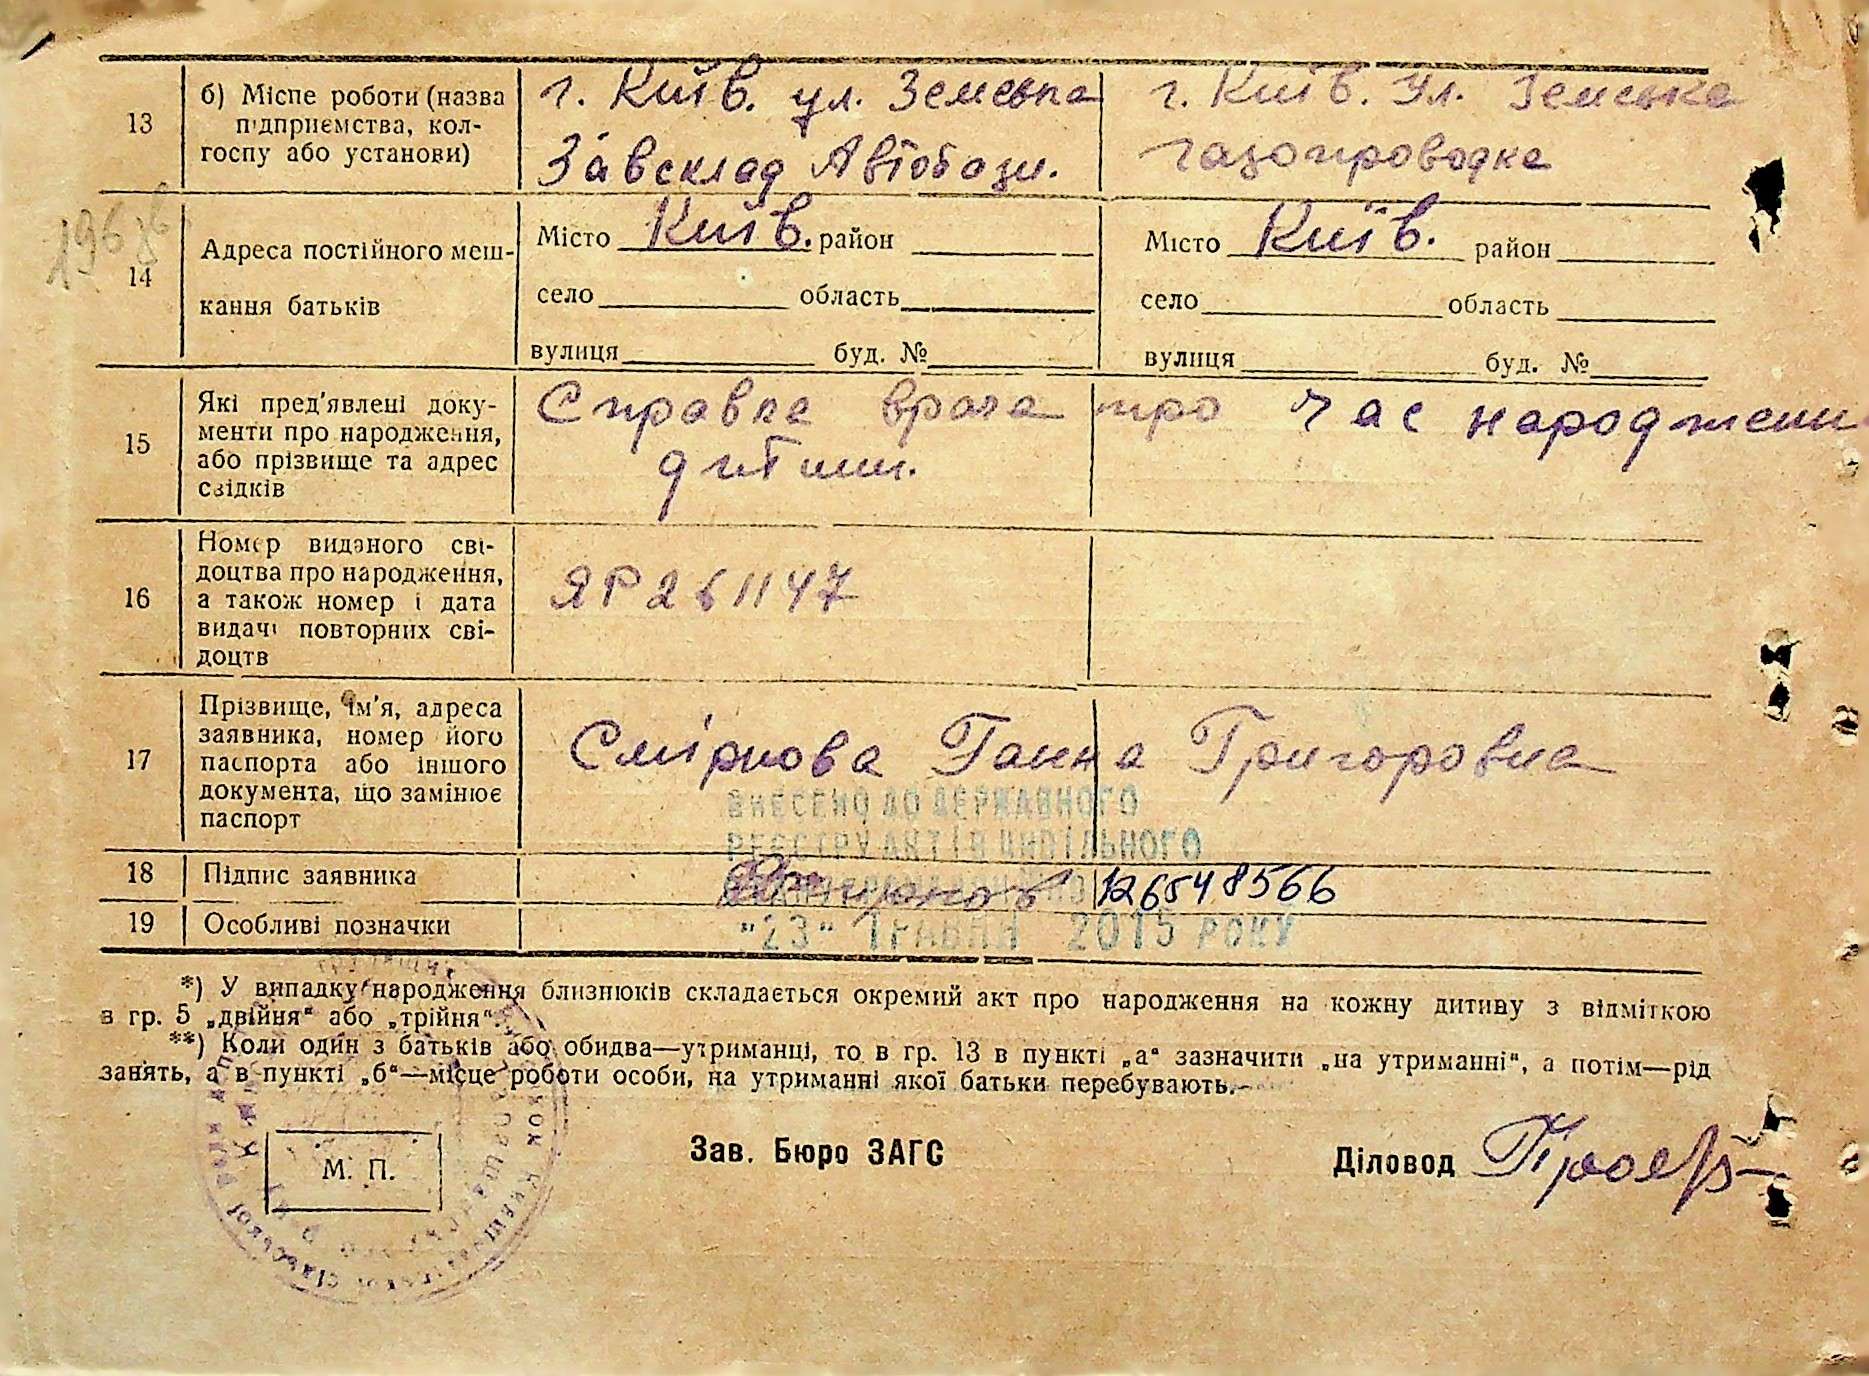 13
б) Місце роботи (назва підприємства, кол-
госпу або установи)
г. Київ. ул. Земська
Завсклад Автобази.
г. Київ. Ул. Земська
газопроводка
14
Адреса постійного меш-
кання батьків
Місто Київ. район
село область
вулиця буд. №
Місто Київ. район
село область
вулиця буд. №
15
Які пред'явлені доку-
менти про народження,
або прізвище та адрес
свідків
Справка врача про час народжени
дитини.
16
Номер виданого сві-
доцтва про народження,
а також номер і дата
видачі повторних сві-
доцтв
ЯР261147
17
Прізвище, ім'я, адреса
заявника, номер його
паспорта або іншого
документа, що замінює
паспорт
Смірнова Ганна Григоровна
ВНЕСЕНО ДО ДЕРЖАВНОГО
РЕЄСТРУ АКТІВ ЦИВІЛЬНОГО
18
Підпис заявника
126548566
19
Особливі позначки
"23" ТРАВНЯ 2015 РОКУ
*) У випадку народження близнюків складається окремий акт про народження на кожну дитину з відміткою
в гр. 5 „двійня“ або „трійня“.
**) Коли один з батьків або обидва—утриманці, то в гр. 13 в пункті „а“ зазначити „на утриманні“, а потім—рід
занять, а в пункті „б“—місце роботи особи, на утриманні якої батьки перебувають.
М. П.
Зав. Бюро ЗАГС
Діловод